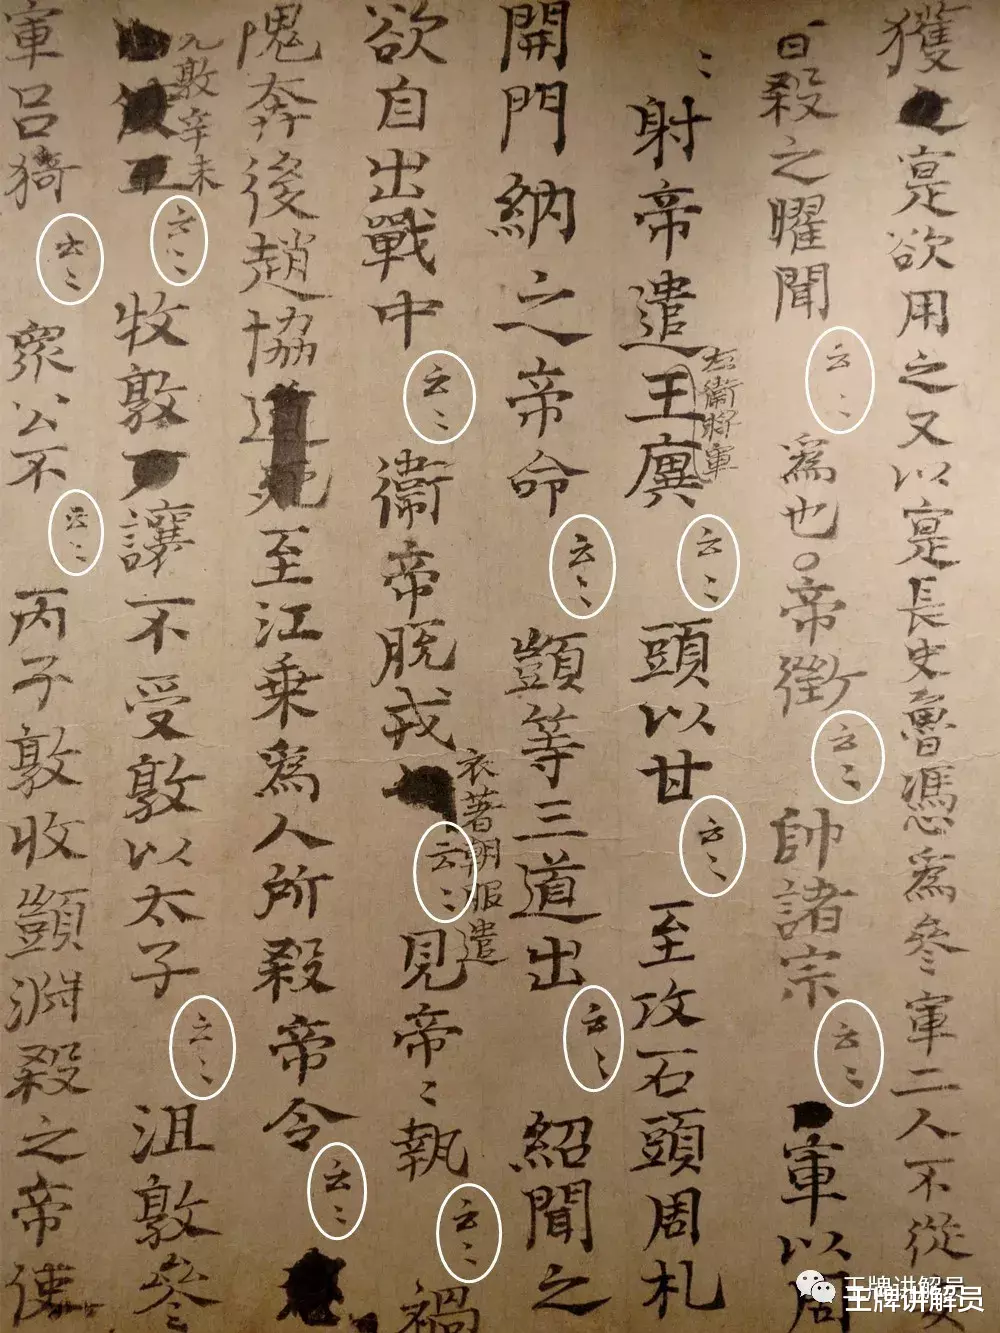 獲寔欲用之又以寔長史魯馮為參軍二人不從
日殺之曜聞云〻為也○帝徵云〻帥諸宗云〻軍以周
〻射帝遣王廙云〻頭以甘云〻至攻石頭周札
右衛將軍
開門納之帝命云〻顗等三道出云〻紹聞之
欲自出戰中云〻衛帝脫戎云〻見帝〻執云〻禍
衣著朝服遣
隗奔後趙協道死至江乘為人所殺帝令云〻
云〻牧敦讓不受敦以太子云〻沮敦參
敦辛未
軍呂猗云〻眾公不云〻丙子敦收顗淵殺之帝使
王牌讲解员
王牌讲解员